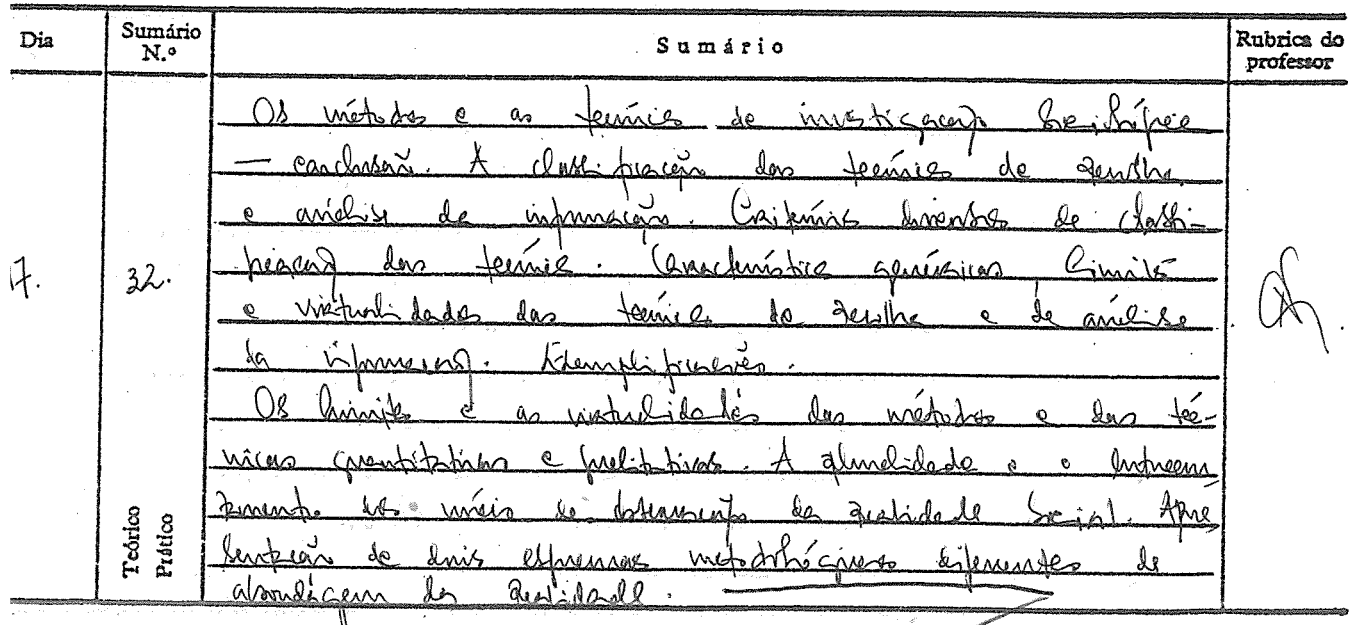 Dia
Sumário N.º
Sumário
Rubrica do professor
Os métodos e as técnicas de investigação Sociológica
— conclusão. A classificação das técnicas de recolha
e análise da informação. Critérios diversos de classi-
ficação das técnicas. Características genéricas limites
e virtualidades das técnicas de recolha e de análise
da informação. Exemplificações.
Os limites e as virtualidades dos métodos e das téc-
nicas quantitativas e qualitativas. A pluralidade e o
dos meios de observação da realidade Social. Apre
sentação de dois esquemas metodológicos diferentes de
abordagem da realidade.
7.
32.
Teórico
Prático